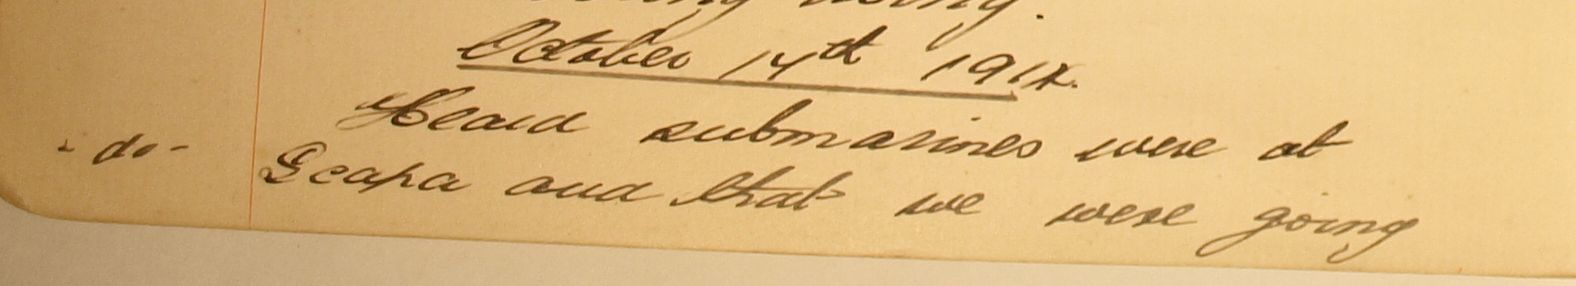 October 14th 1914.
Heard submarines were at
- do - Scapa and that we were going